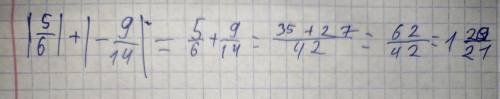 |5/6| + |-9/14| = 5/6 + 9/14 = 35+27/42 = 62/42 = 1 20/21